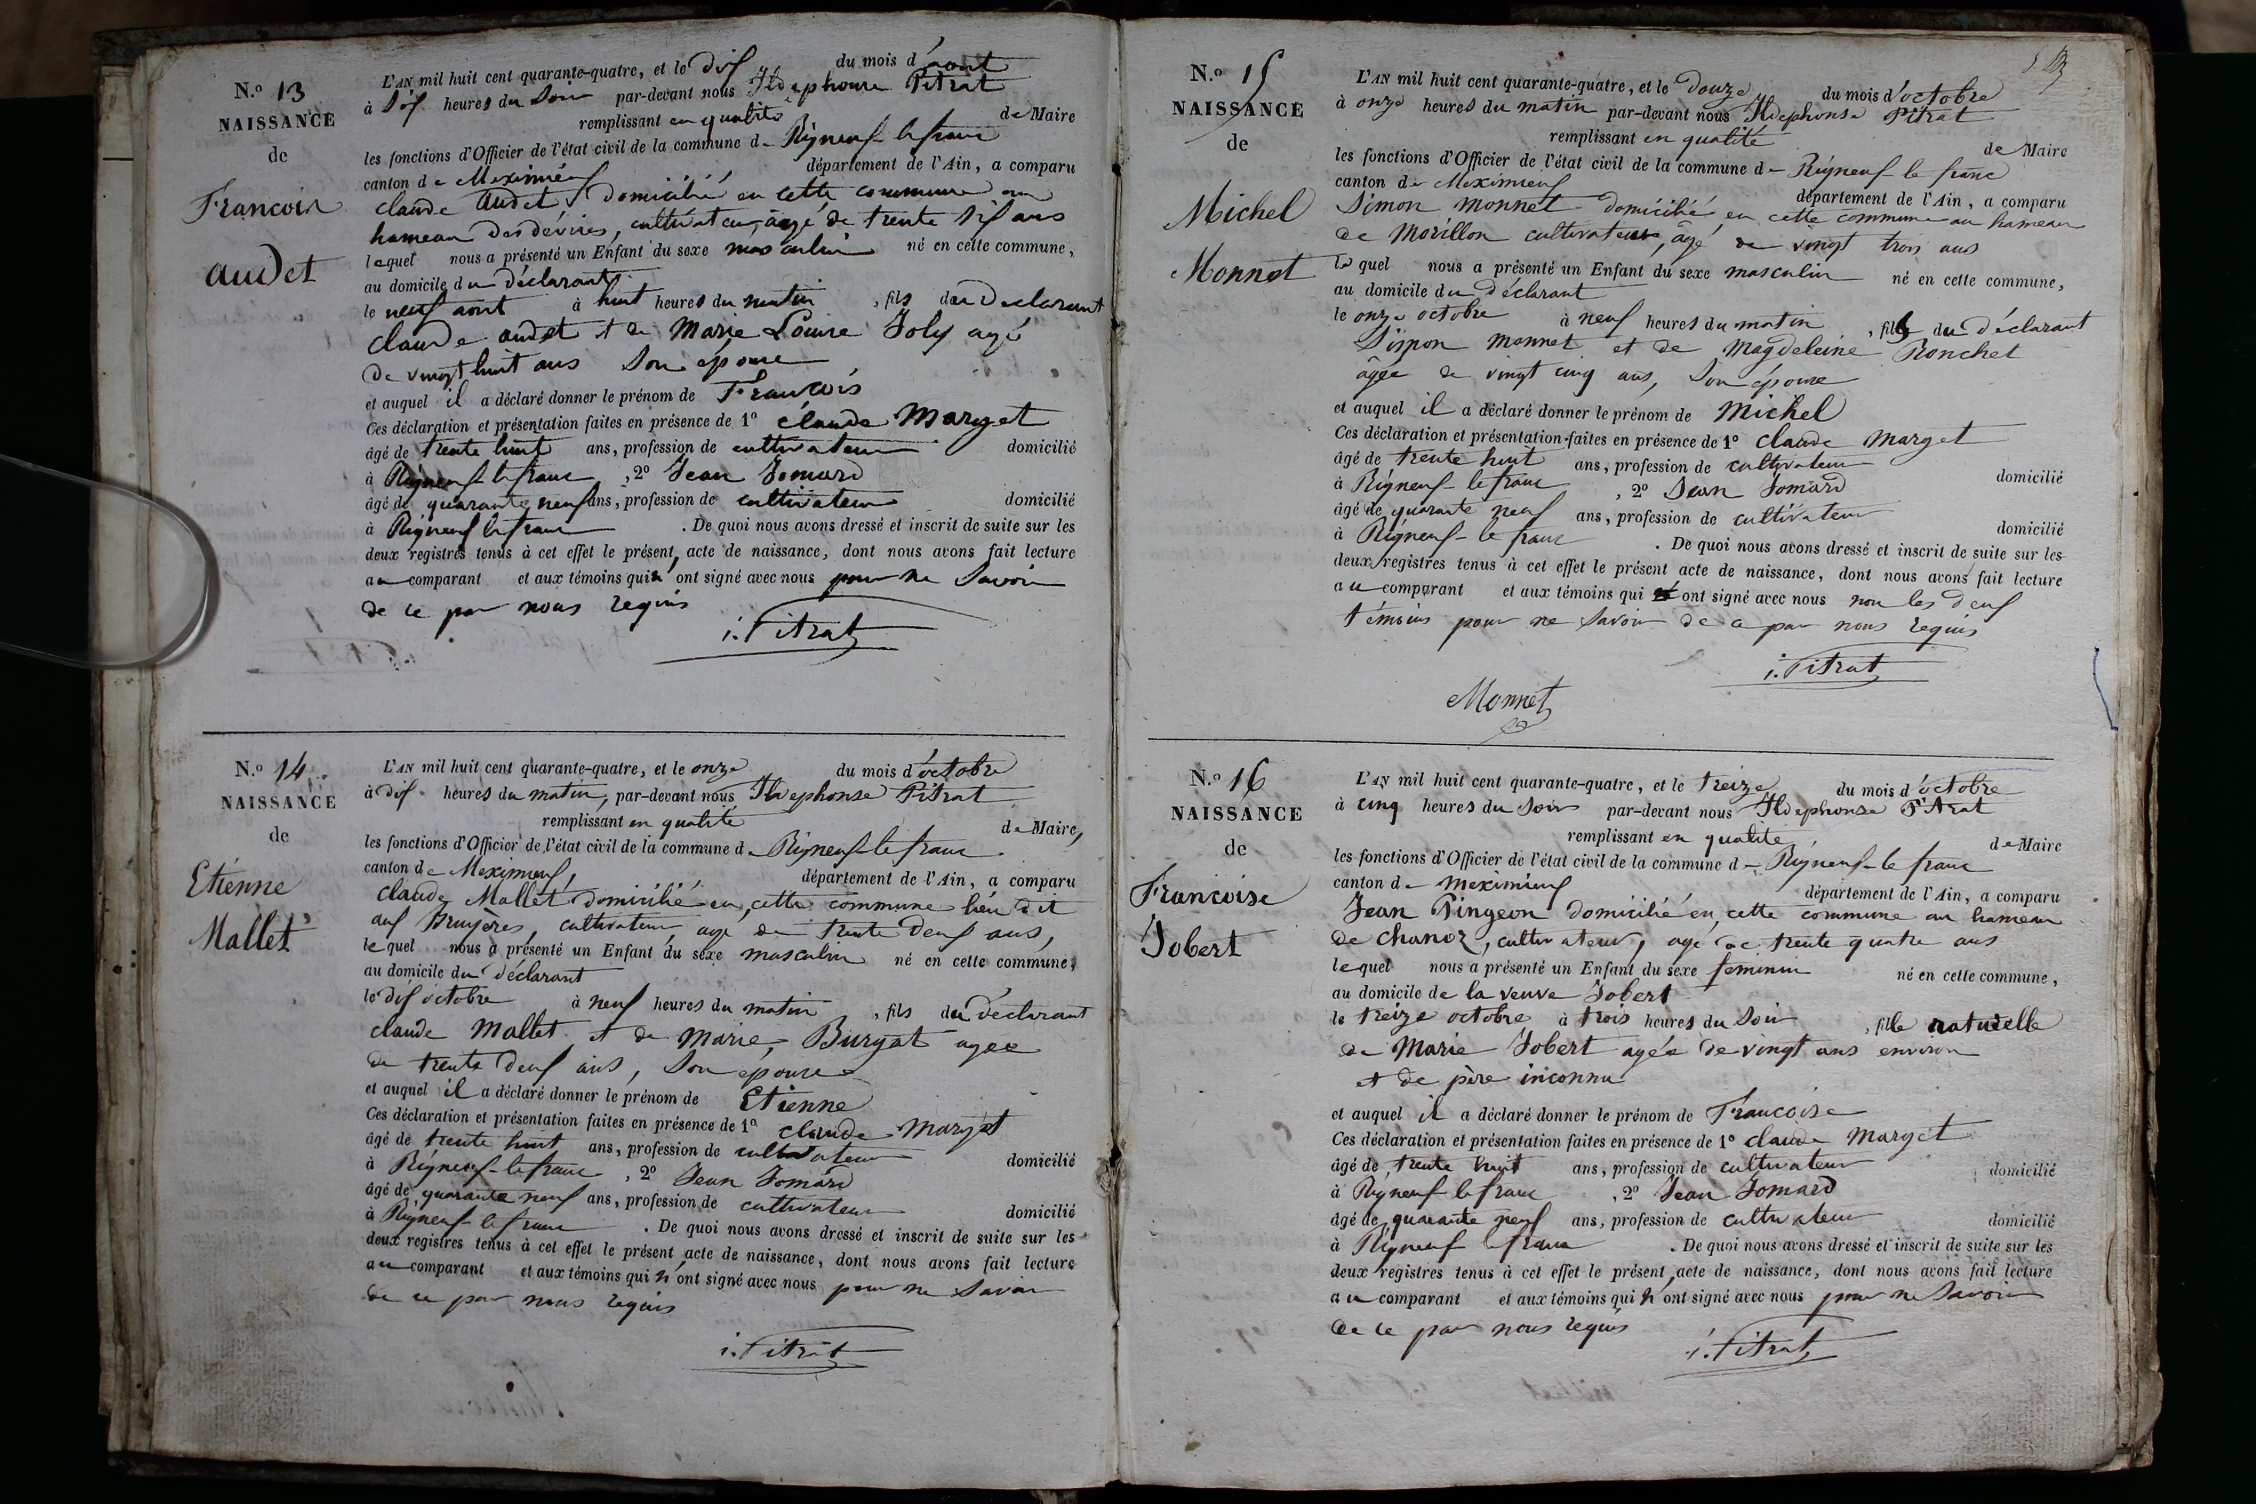 N.º 13
NAISSANCE
de
Francois
audet
L'AN mil huit cent quarante-quatre, et le dix du mois d'août
à six heures du soir par-devant nous Ildephonse Pitrat
remplissant en qualité de Maire
les fonctions d'Officier de l'état civil de la commune de Rigneux-le franc
canton de Meximieux département de l'Ain, a comparu
claude audet domicilié en cette commune au
hameau des dévires, cultivateur, âgé de trente six ans
lequel nous a présenté un Enfant du sexe masculin né en cette commune,
au domicile du déclarant
le neuf aout à huit heures du matin, fils du declarant
claude audet et de Marie Louise Joly agé
de vingt huit ans son épouse
et auquel il a déclaré donner le prénom de François
Ces déclaration et présentation faites en présence de 1º claude Marget
âgé de trente huit ans, profession de cultivateur domicilié
à Rigneux-le franc, 2º Jean Jomard
âgé de quarante neuf ans, profession de cultivateur domicilié
à Rigneux le franc. De quoi nous avons dressé et inscrit de suite sur les
deux registres tenus à cet effet le présent acte de naissance, dont nous avons fait lecture
au comparant et aux témoins qui n'ont signé avec nous pour ne savoir
de ce par nous requis
i. Pitrat
N.º 14
NAISSANCE
de
Etienne
Mallet
L'AN mil huit cent quarante-quatre, et le onze du mois d'octobre
à dix heures du matin, par-devant nous Ildephonse Pitrat
remplissant en qualité de Maire,
les fonctions d'Officier de l'état civil de la commune de Rigneux-le franc
canton de Meximieux, département de l'Ain, a comparu
claude Mallet domicilié en cette commune lieu dit
aux Bruyères, cultivateur age de trente deux ans,
lequel nous a présenté un Enfant du sexe masculin né en cette commune,
au domicile du déclarant
le dix octobre à neuf heures du matin, fils du déclarant
claude Mallet et de Marie Burgat agee
de trente deux ans, son épouse
et auquel il a déclaré donner le prénom de Etienne
Ces déclaration et présentation faites en présence de 1º claude Marget
âgé de trente huit ans, profession de cultivateur domicilié
à Rigneux-le franc, 2º Jean Jomard
âgé de quarante neuf ans, profession de cultivateur domicilié
à Rigneux-le franc. De quoi nous avons dressé et inscrit de suite sur les
deux registres tenus à cet effet le présent acte de naissance, dont nous avons fait lecture
au comparant et aux témoins qui n'ont signé avec nous pour ne savoir
de ce par nous requis
i. Pitrat
N.º 15
NAISSANCE
de
Michel
Monnet
L'AN mil huit cent quarante-quatre, et le douze du mois d'octobre
à onze heures du matin par-devant nous Ildephonse Pitrat
remplissant en qualité de Maire
les fonctions d'Officier de l'état civil de la commune de Rigneux-le franc
canton de Meximieux département de l'Ain, a comparu
Simon Monnet domicilié en cette commune au hameau
de Morillon cultivateur, âgé de vingt trois ans
lequel nous a présenté un Enfant du sexe masculin né en cette commune,
au domicile du déclarant
le onze octobre à neuf heures du matin, fils du déclarant
Simon Monnet et de Magdeleine Ronchet
âgée de vingt cinq ans, son épouse
et auquel il a déclaré donner le prénom de Michel
Ces déclaration et présentation faites en présence de 1º claude Marget
âgé de trente huit ans, profession de cultivateur domicilié
à Rigneux-le franc, 2º Jean Jomard
âgé de quarante neuf ans, profession de cultivateur domicilié
à Rigneux-le franc. De quoi nous avons dressé et inscrit de suite sur les
deux registres tenus à cet effet le présent acte de naissance, dont nous avons fait lecture
au comparant et aux témoins qui ont signé avec nous non les deux
témoins pour ne savoir de ce par nous requis
i. Pitrat
Monnet
N.º 16
NAISSANCE
de
Francoise
Jobert
L'AN mil huit cent quarante-quatre, et le treize du mois d'octobre
à cinq heures du soir par-devant nous Ildephonse Pitrat
remplissant en qualité de Maire
les fonctions d'Officier de l'état civil de la commune de Rigneux-le franc
canton de Meximieux département de l'Ain, a comparu
Jean Pingeon domicilié en cette commune au hameau
de chanoz, cultivateur, agé de trente quatre ans
lequel nous a présenté un Enfant du sexe féminin né en cette commune,
au domicile de la veuve Jobert
le treize octobre à trois heures du soir, fille naturelle
de Marie Jobert agée de vingt ans environ
et de père inconnu
et auquel il a déclaré donner le prénom de Francoise
Ces déclaration et présentation faites en présence de 1º claude Marget
âgé de trente huit ans, profession de cultivateur domicilié
à Rigneux-le franc, 2º Jean Jomard
âgé de quarante neuf ans, profession de cultivateur domicilié
à Rigneux le franc. De quoi nous avons dressé et inscrit de suite sur les
deux registres tenus à cet effet le présent acte de naissance, dont nous avons fait lecture
au comparant et aux témoins qui n'ont signé avec nous pour ne savoir
de ce par nous requis
i. Pitrat